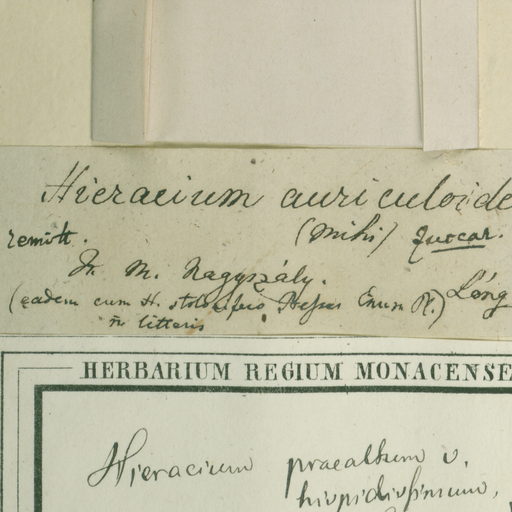 Hieracium auriculoide
remitt. (mihi) Zuccar.
In M. Nagyszály. Láng
(eadem cum H. stolonifero, Enum Pl.)
in litteris
HERBARIUM REGIUM MONACENSE
Hieracium praealtum v.
hispidissimum,